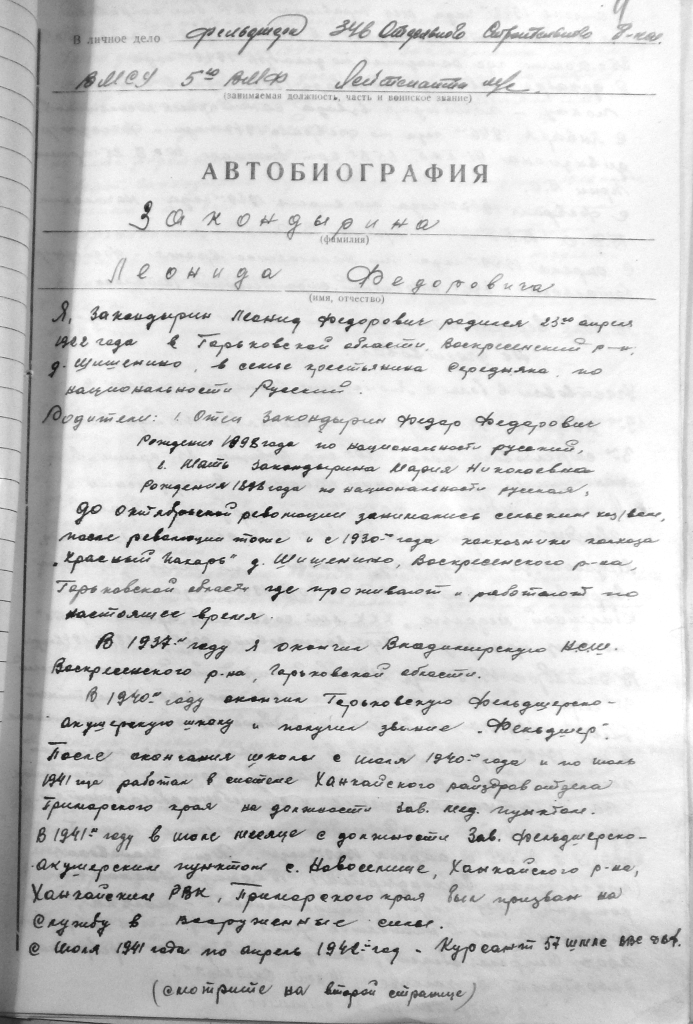 В личное дело фельдшера 34в Отдельного Строительного
ВМСУ 5го ВМФ Лейтенанта м/с
(занимаемая должность, часть и воинское звание)
АВТОБИОГРАФИЯ
Закондырина
(фамилия)
Леонида Федоровича
(имя, отчество)
Я, Закондырин Леонид Федорович родился 23го апреля
1922 года в Горьковской области, Воскресенский р-н,
д. Шишенино, в семье крестьянина середняка, по
национальности Русский.
Родители: 1. Отец Закондырин Федор Федорович
Рождения 1898 года по национальности русский,
Мать Закондырина Мария Николаевна
Рождения года по национальности русская,
До октябрьской революции занимались сельским хоз/вом,
после революции тоже и с 1930-го года колхозники колхоза
"Красный Пахарь" д. Шишенино, Воскресенского р-на,
Горьковской области где проживают и работают по
настоящее время.
В 1937-м году я окончил Владимирскую НСШ.
Воскресенского р-на, Горьковской области.
В 1940-м году окончил Горьковскую Фельдшерско-
акушерскую школу и получил звание "Фельдшер".
После окончания школы с июля 1940-го года и по июль
1941 года работал в системе Ханкайского райздравотдела
Приморского края на должности Зав. мед. пунктом.
В 1941-м году в июле месяце с должности Зав. Фельдшерско-
акушерским пунктом с. Новоселище, Ханкайского р-на,
Ханкайским РВК, Приморского края был призван на
службу в вооруженные силы.
С июля 1941 года по апрель 1942-го год - Курсант 57 школе
(смотрите на второй странице)